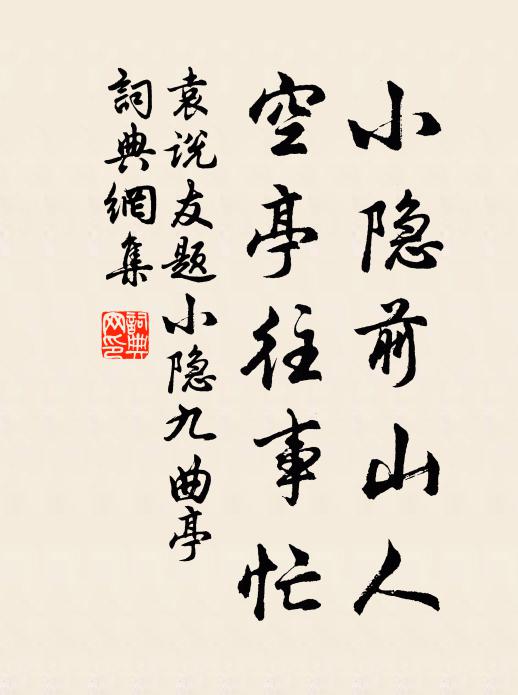 小隐前山人
空亭往事忙
袁说友题小隐九曲亭
詞典網集
詞典
网印